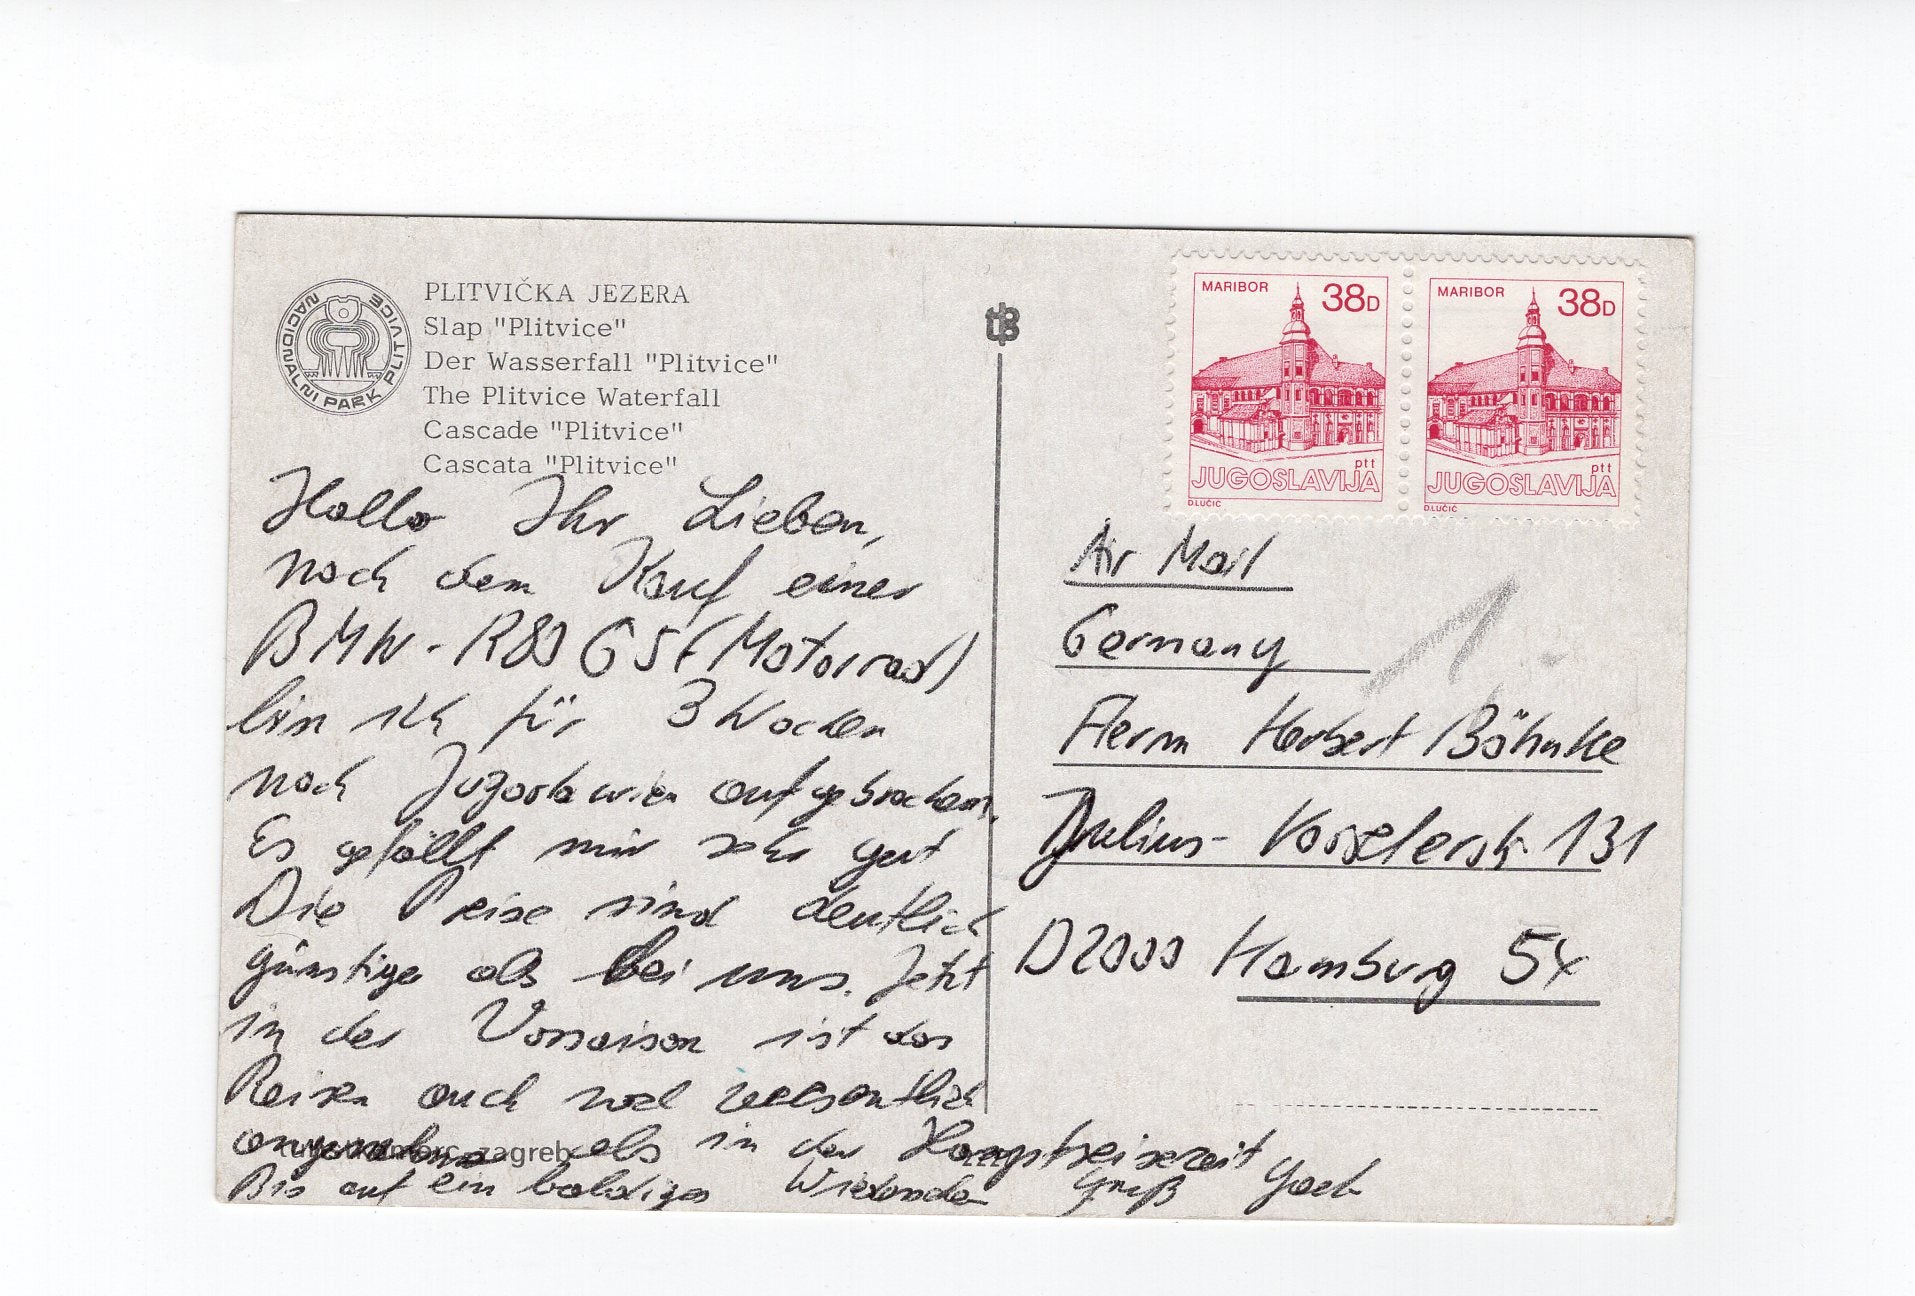 NACIONALNI PARK PLITVICE
PLITVIČKA JEZERA
Slap "Plitvice"
Der Wasserfall "Plitvice"
The Plitvice Waterfall
Cascade "Plitvice"
Cascata "Plitvice"
Hallo Ihr Lieben,
nach dem Kauf einer
BMW-R80 GS (Motorrad)
bin ich für 3 Wochen
nach Jugoslawien aufgebrochen.
Es gefällt mir sehr gut
Die Preise sind deutlich
günstiger als bei uns. Jetzt
in der Vorsaison ist das
Reisen auch wesentlich
angenehmer als in der Hauptreisezeit
Bis auf ein baldiges Gruß
zagreb
MARIBOR 38D
ptt
JUGOSLAVIJA
D.LUČIĆ
MARIBOR 38D
ptt
JUGOSLAVIJA
D.LUČIĆ
Air Mail
Germany
1
Herrn Herbert Böhnke
Julius-Vosselerstr. 131
D2000 Hamburg 54